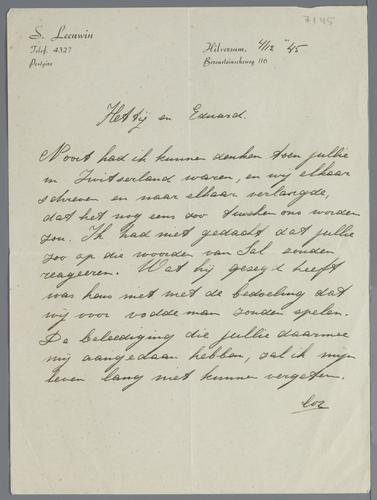 7145
S. Leeuwin
Telef. 4327
Postgiro
Hilversum, 4/12 '45
Berensteinscheweg 116
Hettij en Eduard.
Nooit had ik kunnen denken toen jullie
in Zwitserland waren, en wij elkaar
schreven en naar elkaar verlangde,
dat het nog eens zoo tusschen ons worden
zou. Ik had niet gedacht dat jullie
zoo op die woorden van Sal zouden
reageeren. Wat hij gezegd heeft
was heus niet met de bedoeling dat
wij voor vodde man zouden spelen.
De beleediging die jullie daarmee
mij aangedaan hebben, zal ik mijn
leven lang niet kunnen vergeten.